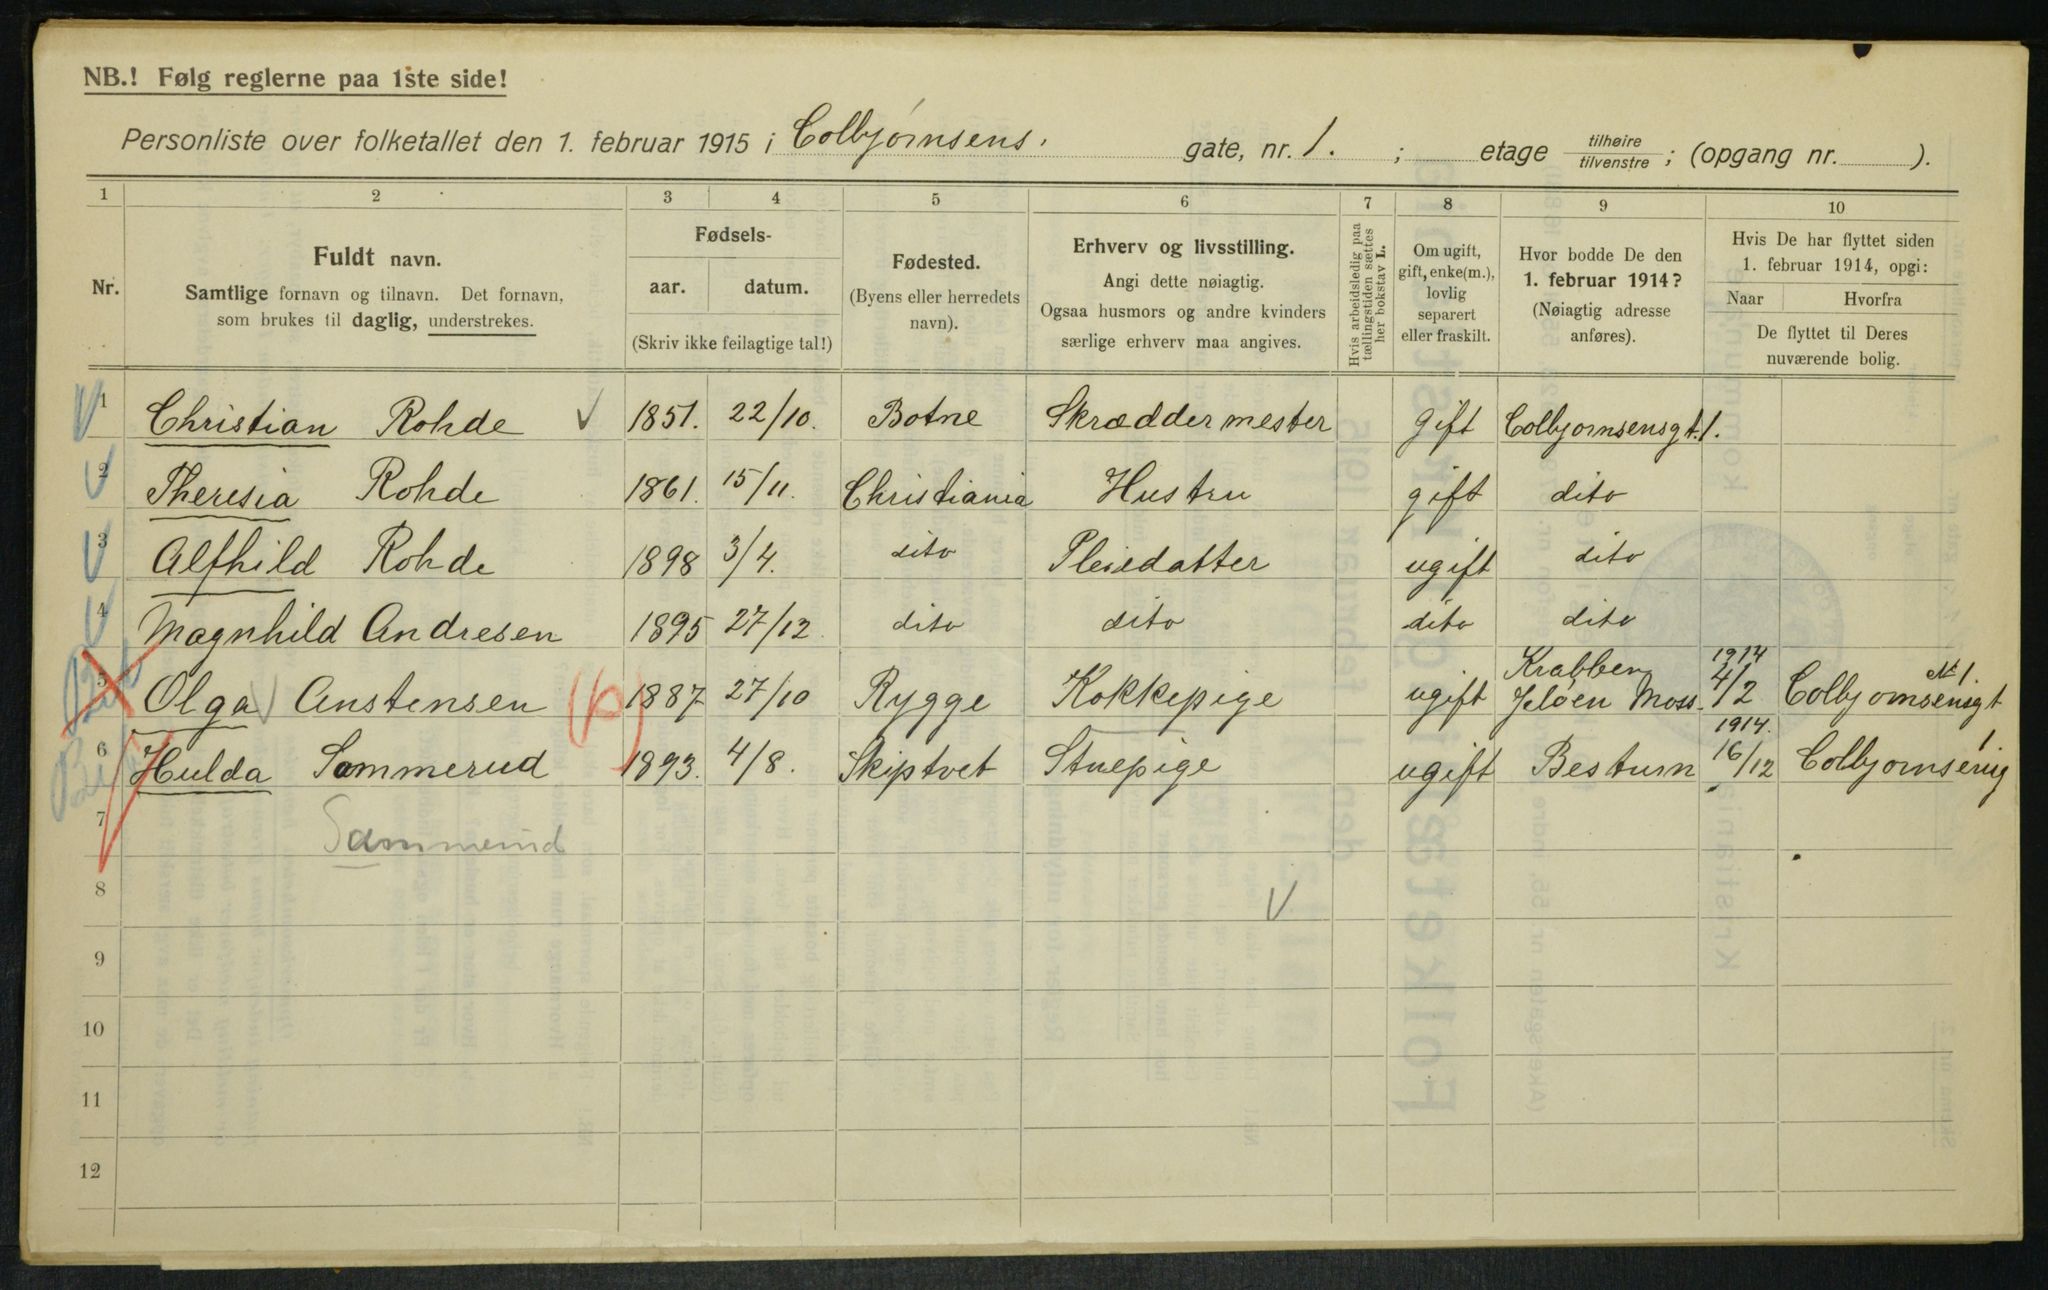 NB.! Følg reglerne paa 1ste side!
Personliste over folketallet den 1. februar 1915 i Colbjørnsens. gate, nr. 1. ; etage tilhøire tilvenstre ; (opgang nr. ).
1 2 3 4 5 6 7 8 9 10
Nr.
Fuldt navn.
Samtlige fornavn og tilnavn. Det fornavn,
som brukes til daglig, understrekes.
Fødsels-
aar. datum.
(Skriv ikke feilagtige tal!)
Fødested.
(Byens eller herredets
navn).
Erhverv og livsstilling.
Angi dette nøiagtig.
Ogsaa husmors og andre kvinders
særlige erhverv maa angives.
Hvis arbeidsledig paa
tællingstiden sættes
her bokstav L.
Om ugift,
gift, enke(m.),
lovlig
separert
eller fraskilt.
Hvor bodde De den
1. februar 1914?
(Nøiagtig adresse
anføres).
Hvis De har flyttet siden
1. februar 1914, opgi:
Naar Hvorfra
De flyttet til Deres
nuværende bolig.
1 Christian Rohde 1851. 22/10. Botne Skræddermester gift Colbjornsensgt. 1.
2 Theresia Rohde 1861. 15/11. Christiania Hustru gift dito
3 Alfhild Rohde 1898 3/4. dito Pleiedatter ugift dito
4 Magnhild Andresen 1895 27/12. dito dito dito dito
5 Olga Anstensen (b) 1887 27/10 Rygge Kokkepige ugift Krabben Jeløen Moss. 1914 4/2 Colbjornsensgt No 1.
6 Hulda Sommerud 1893. 4/8. Skiptvet Stuepige ugift Bestum 1914. 16/12 Colbjornsensg 1
7 Sammerud
8
9
10
11
12